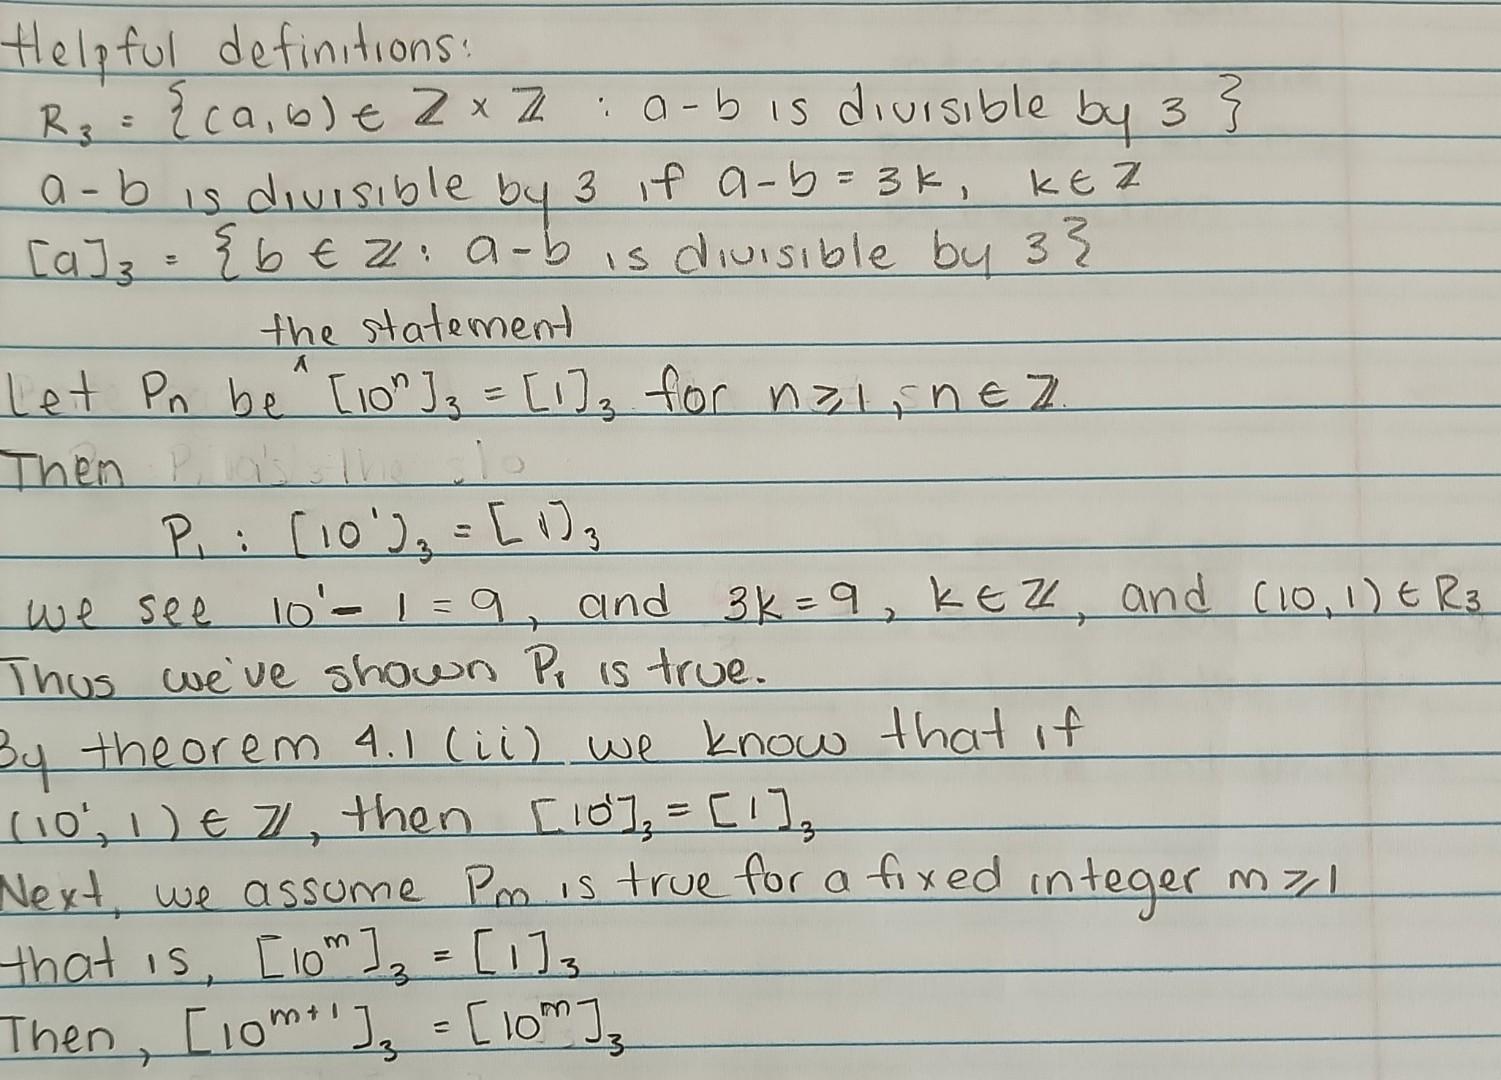 Helpful definitions:
R₃ = {(a,b) ∈ ℤ × ℤ : a-b is divisible by 3}
a-b is divisible by 3 if a-b = 3k, k ∈ ℤ
[a]₃ = {b ∈ ℤ : a-b is divisible by 3}
the statement
Let Pn be ^ [10ⁿ]₃ = [1]₃ for n ⩾ 1, n ∈ ℤ.
Then
P₁ : [10¹]₃ = [1]₃
we see 10¹ - 1 = 9, and 3k = 9, k ∈ ℤ, and (10,1) ∈ R₃
Thus we've shown P₁ is true.
By theorem 4.1 (ii) we know that if
(10¹, 1) ∈ ℤ, then [10¹]₃ = [1]₃
Next, we assume Pm is true for a fixed integer m ⩾ 1
that is, [10ᵐ]₃ = [1]₃
Then, [10ᵐ⁺¹]₃ = [10ᵐ]₃